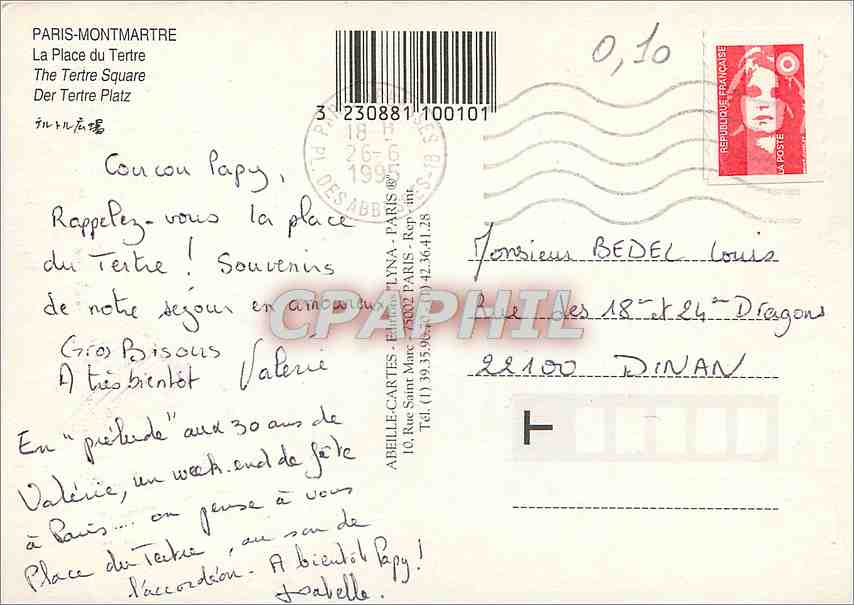 PARIS-MONTMARTRE
La Place du Tertre
The Tertre Square
Der Tertre Platz
テルトル広場
3 230881 100101
0,10
RÉPUBLIQUE FRANÇAISE
LA POSTE
18 H
26-6
1995
PL. DES ABBESSES-18
Coucou Papy,
Rappelez-vous la place
du Tertre ! Souvenirs
de notre séjour en amoureux
Gros Bisous
A très bientôt Valérie
En "prélude" aux 30 ans de
Valérie, un week-end de fête
à Paris.... on pense à vous
Place du Tertre, au son de
l'accordéon - A bientôt Papy !
Isabelle.
ABEILLE-CARTES - Editions "LYNA - PARIS ®"
10, Rue Saint Marc - 75002 PARIS - Rep. int.
Tél. (1) 39.35.90.70 - (1) 42.36.41.28
Monsieur BEDEL Louis
Rue des 18ᵐᵉ et 24ᵐᵉ Dragons
22100 DINAN
T
CPAPHIL